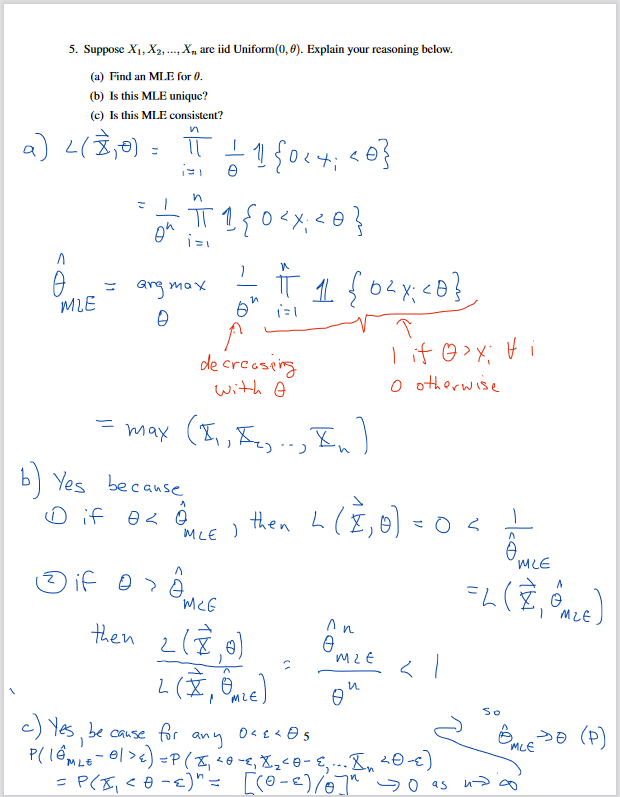 5. Suppose X₁, X₂, ..., Xₙ are iid Uniform(0, θ). Explain your reasoning below.
(a) Find an MLE for θ.
(b) Is this MLE unique?
(c) Is this MLE consistent?
a) L(X⃗, θ) = ∏ᵢ₌₁ⁿ 1/θ 𝟙{0 < xᵢ < θ}
= 1/θⁿ ∏ᵢ₌₁ⁿ 𝟙{0 < xᵢ < θ}
θ̂_MLE = arg max_θ 1/θⁿ ∏ᵢ₌₁ⁿ 𝟙{0 < xᵢ < θ}
decreasing with θ
1 if θ > xᵢ ∀ i
0 otherwise
= max (X₁, X₂, .., Xₙ)
b) Yes because
① if θ < θ̂_MLE, then L(X⃗, θ) = 0 < 1/θ̂_MLE
= L(X⃗, θ̂_MLE)
② if θ > θ̂_MLE
then L(X⃗, θ) / L(X⃗, θ̂_MLE) = θ̂ⁿ_MLE / θⁿ < 1
c) Yes, because for any 0 < ε < θ,
P(|θ̂_MLE - θ| > ε) = P(X₁ < θ - ε, X₂ < θ - ε, ... Xₙ < θ - ε)
= P(X₁ < θ - ε)ⁿ = [(θ - ε)/θ]ⁿ → 0 as n → ∞
so θ̂_MLE → θ (P)